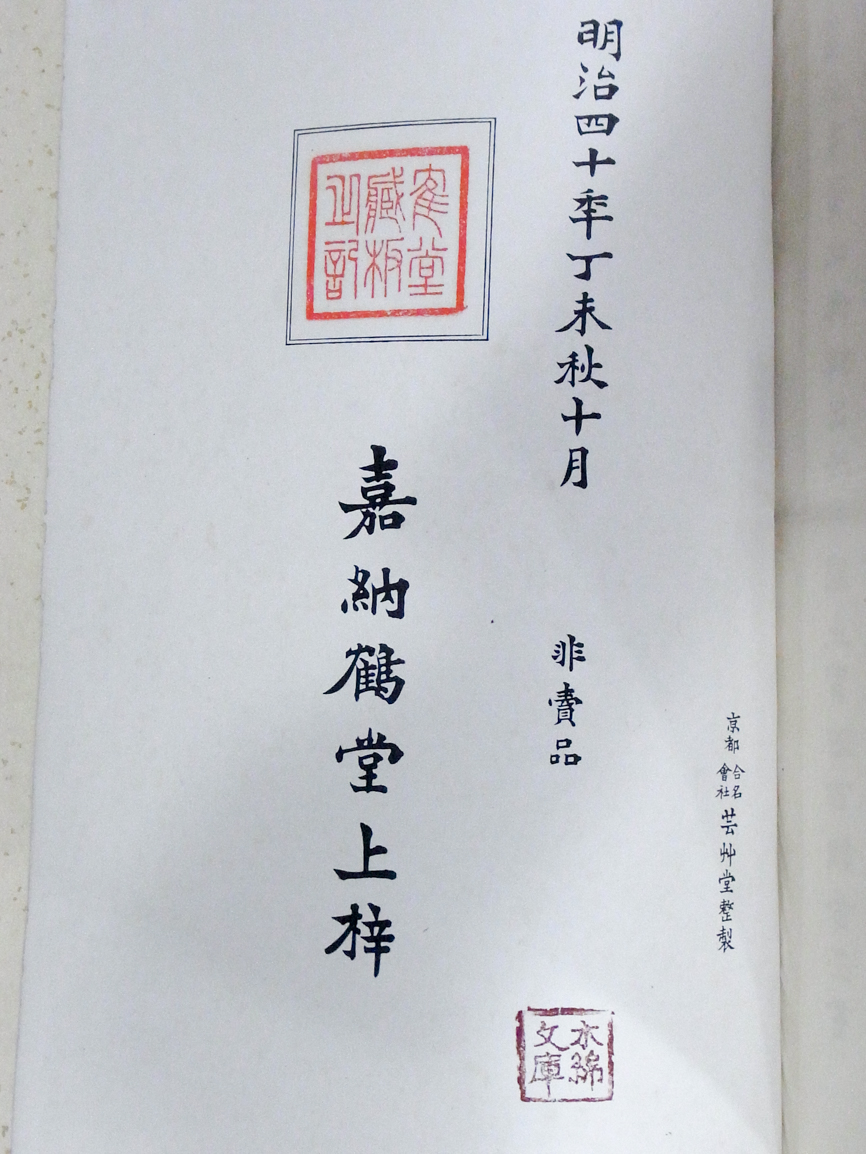 京都合名會社芸艸堂整製
明治四十季丁未秋十月
非賣品
嘉納鶴堂上梓
隺堂
藏板
之記
木綿
文庫